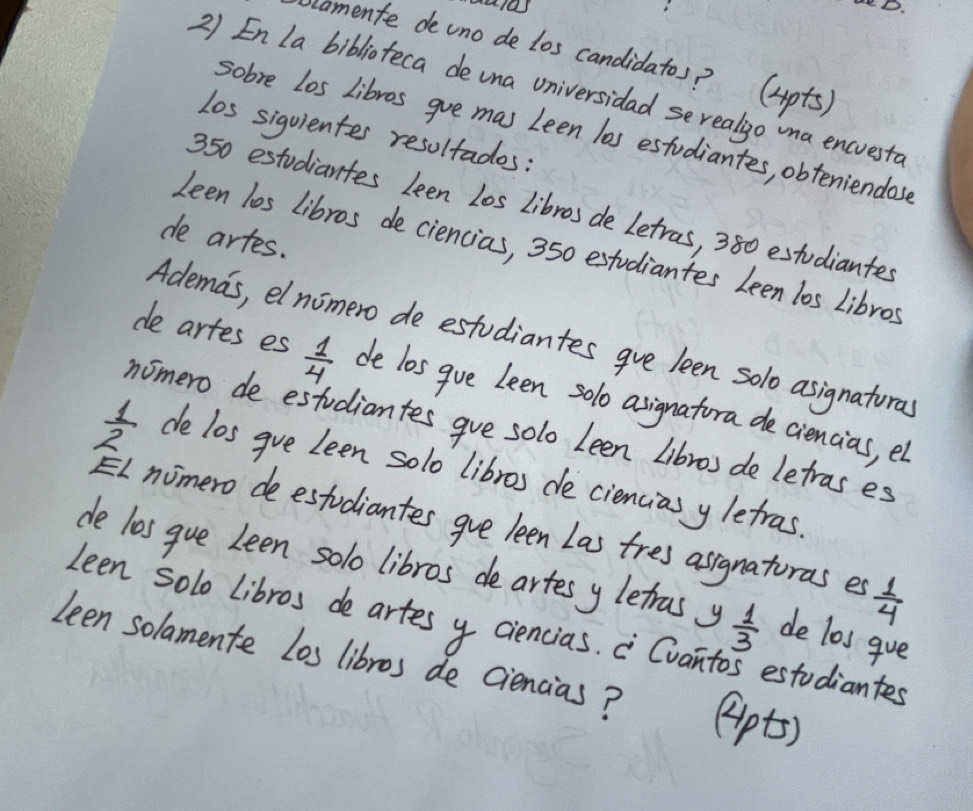 solamente de uno de los candidatos? (4pts)
2) En la biblioteca de una universidad se realizo una encuesta
sobre los libros que mas leen los estudiantes, obteniendose
los siguientes resultados:
350 estudiantes leen los libros de letras, 380 estudiantes
leen los libros de ciencias, 350 estudiantes leen los libros
de artes.
Además, el número de estudiantes que leen solo asignaturas
de artes es 1/4 de los que leen solo asignatura de ciencias, el
número de estudiantes que solo leen libros de letras es
1/2 de los que leen solo libros de ciencias y letras.
El número de estudiantes que leen las tres asignaturas es 1/4
de los que leen solo libros de artes y letras y 1/3 de los que
leen solo libros de artes y ciencias. ¿Cuántos estudiantes
leen solamente los libros de ciencias? (4pts)